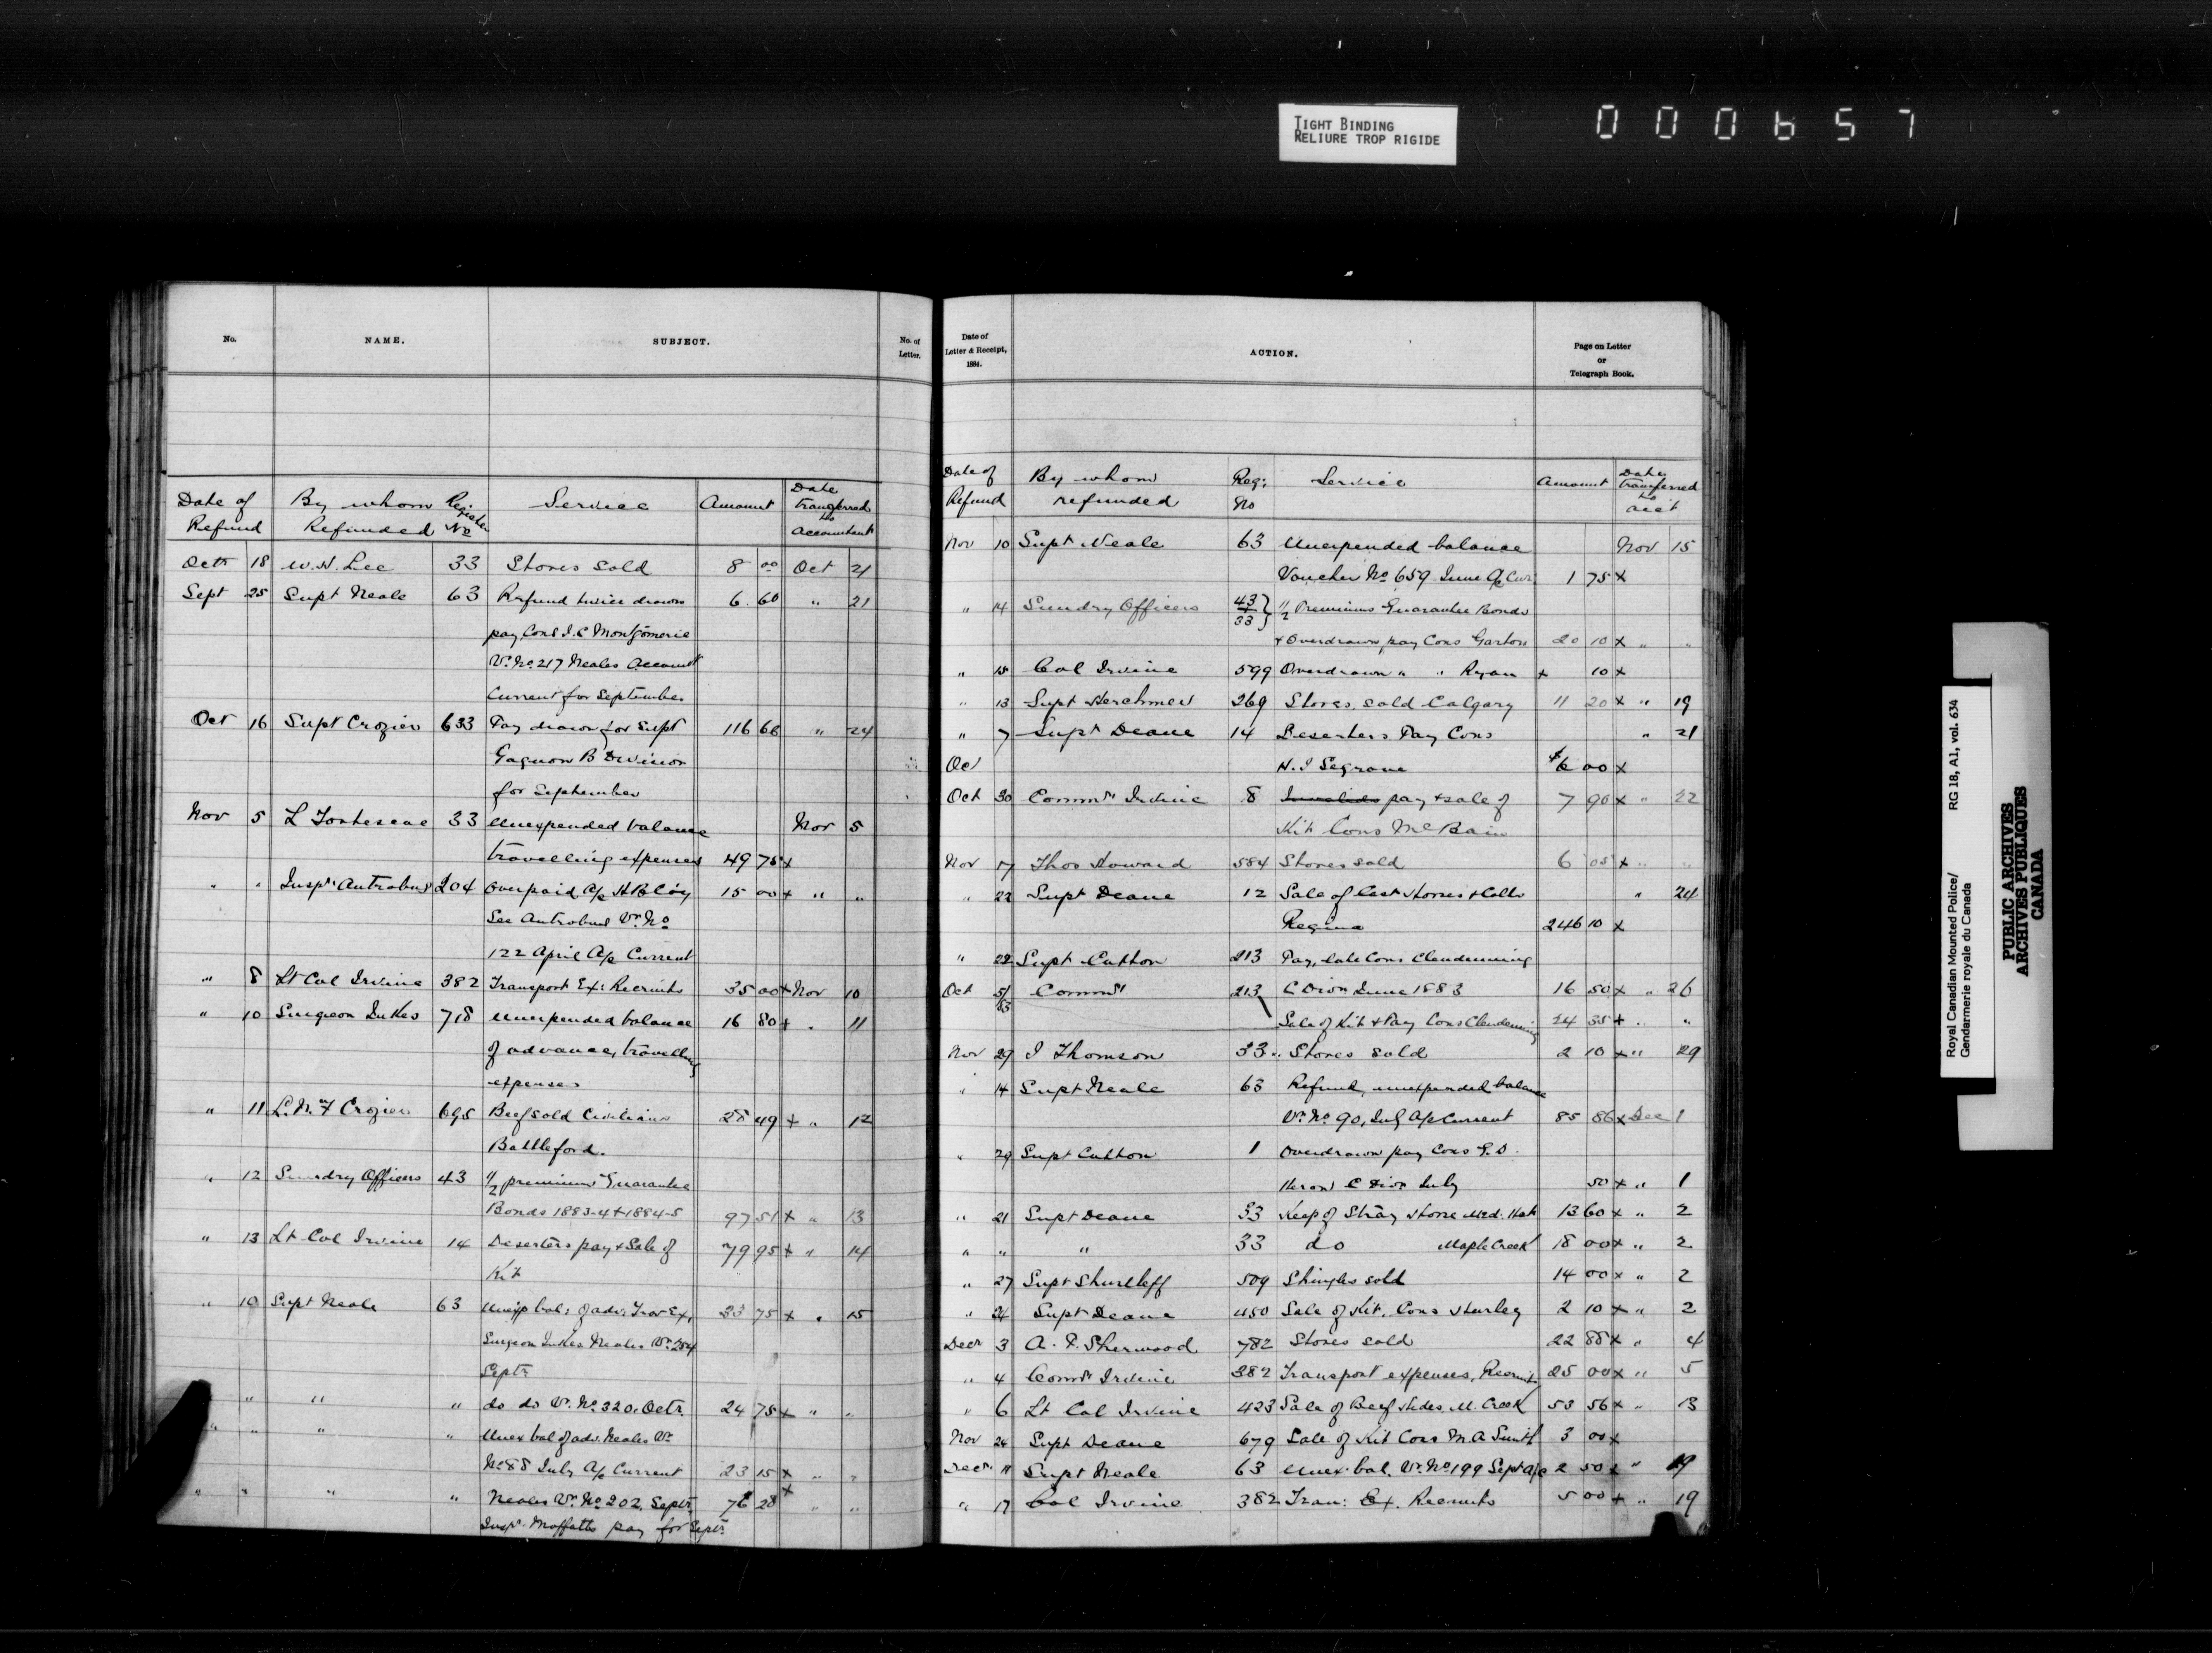 TIGHT BINDING
RELIURE TROP RIGIDE
000657
No. NAME. SUBJECT. No. of Letter.
Date of Refund By whom Refunded Register No Service Amount Date transferred to Accountant
Oct 18 W. H. Lee 33 Stores Sold 8 00 Oct 21
Sept 25 Supt Neale 63 Refund twice drawn 6 60 " 21
pay Cons J. C Montgomerie
Vr. No 217 Neales Account
Current for September
Oct 16 Supt Crozier 633 Pay drawn for Supt 116 66 " 24
Gagnon B Division
for September
Nov 5 L Fortescue 33 Unexpended balance Nov 5
travelling expenses 49 75 x
" " Inspr Antrobus 204 Overpaid a/c H B Coy 15 00 x " "
See Antrobus Vr. No
122 April A/c Current
" 8 Lt Col Irvine 382 Transport Ex: Recruits 35 00 x Nov 10
" 10 Surgeon Jukes 718 Unexpended balance 16 80 x " 11
of advance, travelling
expenses
" 11 L. N. F Crozier 695 Beef sold Civilians 28 49 x " 12
Battleford.
" 12 Sundry Officers 43 1/2 premiums Guarantee
Bonds 1883-4 + 1884-5 97 51 x " 13
" 13 Lt Col Irvine 14 Deserters pay + Sale of 79 95 x " 14
Kit
" 10 Supt Neale 63 Unexp bal: of adv: Trav Ex, 33 75 x " 15
Surgeon Jukes Neales Vr. 254
Septr
" " " do do Vr. No. 320. Octr. 24 75 x " "
" " " " Unex bal of adv. Neales Vr
No 88 July A/c Current 23 15 x " "
" " " " Neales Vr. No 202, Septr. 76 28 x " "
Inspr. Moffatts pay for Septr.
Date of Letter & Receipt, 1884. ACTION. Page on Letter or Telegraph Book.
Date of Refund By whom refunded Reg: No Service Amount Date transferred to acct
Nov 10 Supt Neale 63 Unexpended balance Nov 15
Voucher No 659 June A/c Cur. 1 75 x
" 14 Sundry Officers 43 + 33 } 1/2 Premiums Guarantee Bonds
+ Overdrawn pay Cons Garton 20 10 x " "
" 15 Col Irvine 599 Overdrawn " " Ryan x 10 x
" 13 Supt Herchmer 269 Stores, sold Calgary 11 20 x " 19
" 7 Supt Deane 14 Deserters Pay Cons " 21
Oct N. J Segrave 6 00 x
Oct 30 Commr Irvine 8 Invalids pay + sale of 7 90 x " 22
Kit Cons McBain
Nov 17 Thos Howard 584 Stores sold 6 05 x " "
" 22 Supt Deane 12 Sale of Cast Horses + Colts " 24
Regina 246 10 x
" 22 Supt Cotton 213 Pay, late Cons Clendenning
Oct 5/83 Commr 213 C Divn June 1883 16 50 x " 26
Sale of Kit + Pay Cons Clendenning 24 35 x " "
Nov 29 J Thomson 33 Stores sold 2 10 x " 29
" 14 Supt Neale 63 Refund, unexpended balance
Vr. No 90, July A/c Current 85 86 x Dec 1
" 29 Supt Cotton 1 Overdrawn pay Cons G. D.
Heron C Divn July 50 x " 1
" 21 Supt Deane 33 Keep of Stray Horse Med. Hat 13 60 x " 2
" " " 33 do Maple Creek 18 00 x " 2
" 27 Supt Shurtleff 509 Shingles sold 14 00 x " 2
" 24 Supt Deane 450 Sale of Kit, Cons Hurley 2 10 x " 2
Decr 3 A. P. Sherwood 782 Stores sold 22 88 x " 4
" 4 Commr Irvine 382 Transport expenses, Recruits 25 00 x " 5
" 6 Lt Col Irvine 423 Sale of Beef Hides M. Creek 53 56 x " 13
Nov 24 Supt Deane 679 Sale of Kit Cons M. A Smith 3 00 x
Decr 11 Supt Neale 63 Unex. bal. Vr. No 199 Sept A/c 2 50 x " 19
" 17 Col Irvine 382 Tran: Ex. Recruits 5 00 x " 19
Royal Canadian Mounted Police/ RG 18, A1, vol. 634
Gendarmerie royale du Canada
PUBLIC ARCHIVES
ARCHIVES PUBLIQUES
CANADA